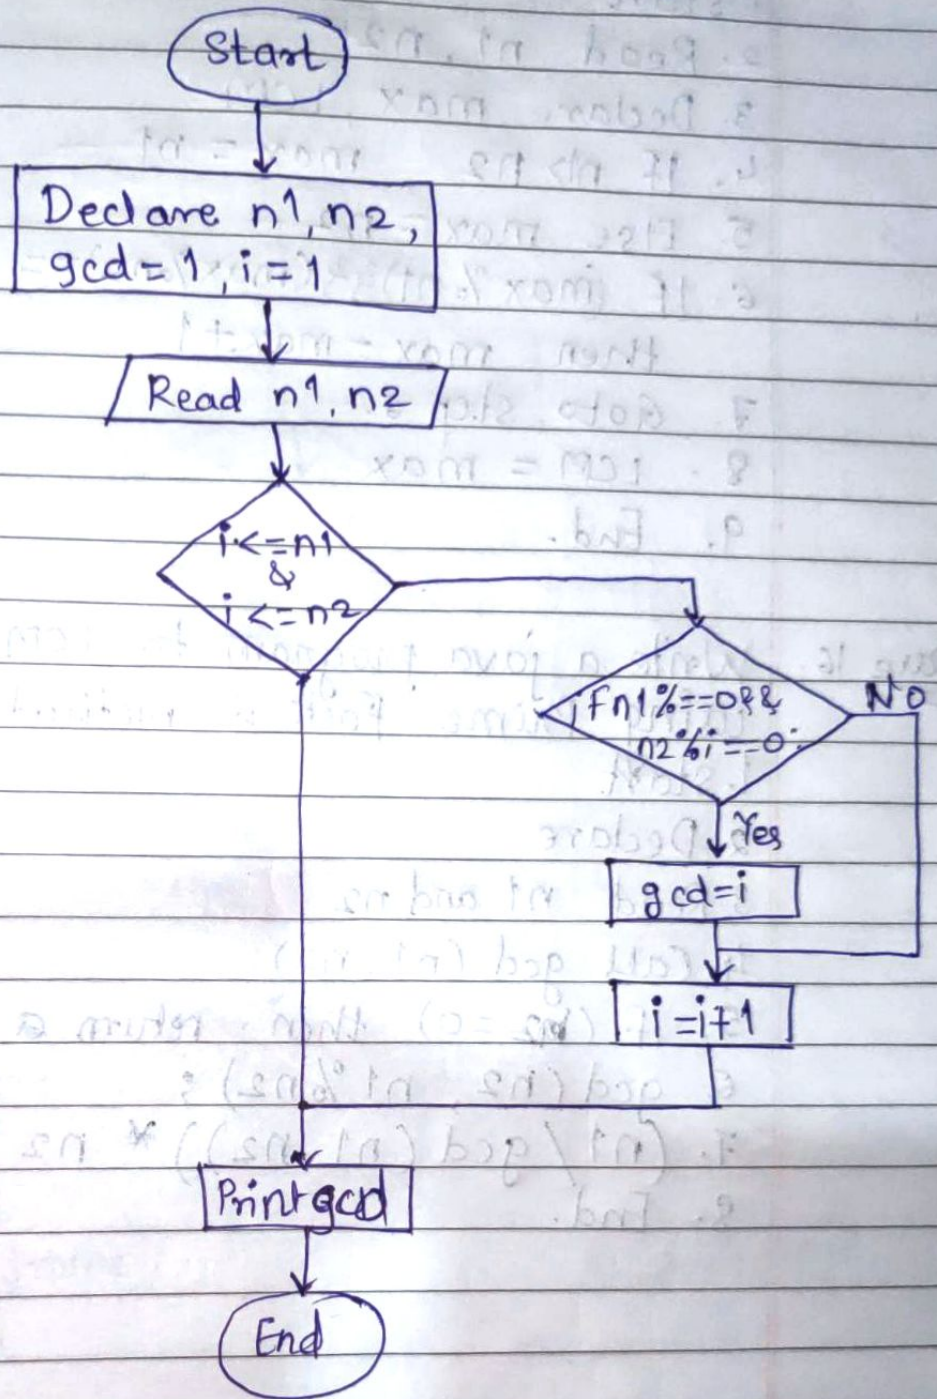 Start
Declare n1, n2,
gcd = 1, i = 1
Read n1, n2
i <= n1
&
i <= n2
if n1%==0&&
n2%i==0
No
Yes
gcd=i
i=i+1
Print gcd
End